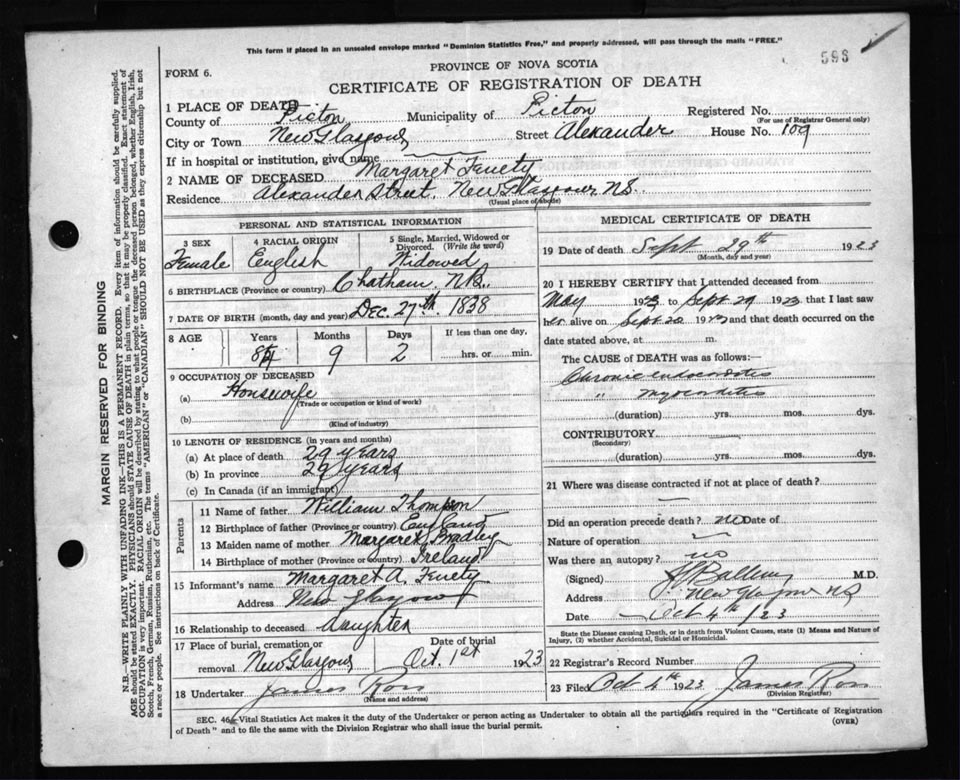 This form if placed in an unsealed envelope marked "Dominion Statistics Free," and properly addressed, will pass through the mails "FREE."
593
PROVINCE OF NOVA SCOTIA
FORM 6.
CERTIFICATE OF REGISTRATION OF DEATH
1 PLACE OF DEATH—
County of Picton Municipality of Picton Registered No.
(For use of Registrar General only)
City or Town New Glasgow Street Alexander House No. 109
If in hospital or institution, give name
2 NAME OF DECEASED Margaret Fenety
Residence Alexander Street, New Glasgow N.S.
(Usual place of abode)
PERSONAL AND STATISTICAL INFORMATION
3 SEX
Female
4 RACIAL ORIGIN
English
5 Single, Married, Widowed or Divorced. (Write the word)
Widowed
6 BIRTHPLACE (Province or country) Chatham, N.B.
7 DATE OF BIRTH (month, day and year) Dec. 27th. 1838
8 AGE
Years Months Days If less than one day,
84 9 2 hrs. or min.
9 OCCUPATION OF DECEASED
(a) Housewife
(Trade or occupation or kind of work)
(b)
(Kind of industry)
10 LENGTH OF RESIDENCE (in years and months)
(a) At place of death 29 years
(b) In province 29 years
(c) In Canada (if an immigrant)
Parents
11 Name of father William Thompson
12 Birthplace of father (Province or country) England
13 Maiden name of mother Margaret Bradley
14 Birthplace of mother (Province or country) Ireland
15 Informant's name Margaret A. Fenety
Address New Glasgow
16 Relationship to deceased daughter
17 Place of burial, cremation or Date of burial
removal New Glasgow Oct. 1st 1923
18 Undertaker James Ross
(Name and address)
MEDICAL CERTIFICATE OF DEATH
19 Date of death Sept 29th 1923
(Month, day and year)
20 I HEREBY CERTIFY that I attended deceased from
May 1923 to Sept 29 1923, that I last saw
her alive on Sept 20 1923 and that death occurred on the
date stated above, at m.
The CAUSE of DEATH was as follows:
Chronic endocarditis
" myocarditis
(duration) yrs. mos. dys.
CONTRIBUTORY
(Secondary)
(duration) yrs. mos. dys.
21 Where was disease contracted if not at place of death?
Did an operation precede death? no Date of
Nature of operation
Was there an autopsy? no
(Signed) M.D.
Address New Glasgow N S
Date Oct 4th / 23
State the Disease causing Death, or in death from Violent Causes, state (1) Means and Nature of
Injury, (2) whether Accidental, Suicidal or Homicidal.
22 Registrar's Record Number
23 Filed Oct 4th 1923 James Ross
(Division Registrar)
SEC. 46 Vital Statistics Act makes it the duty of the Undertaker or person acting as Undertaker to obtain all the particulars required in the "Certificate of Registration
of Death" and to file the same with the Division Registrar who shall issue the burial permit.
(OVER)
MARGIN RESERVED FOR BINDING
N.B.—WRITE PLAINLY WITH UNFADING INK—THIS IS A PERMANENT RECORD. Every item of information should be carefully supplied.
AGE should be stated EXACTLY. PHYSICIANS should STATE CAUSE OF DEATH in plain terms, so that it may be properly classified. Exact statement of
OCCUPATION is very important. RACIAL ORIGIN will be described by stating to what people or tongue the deceased person belonged, whether English, Irish,
Scotch, French, German, Russian, Ruthenian, etc. The terms "AMERICAN" or "CANADIAN" SHOULD NOT BE USED as they express citizenship but not
a race or people. See instructions on back of Certificate.